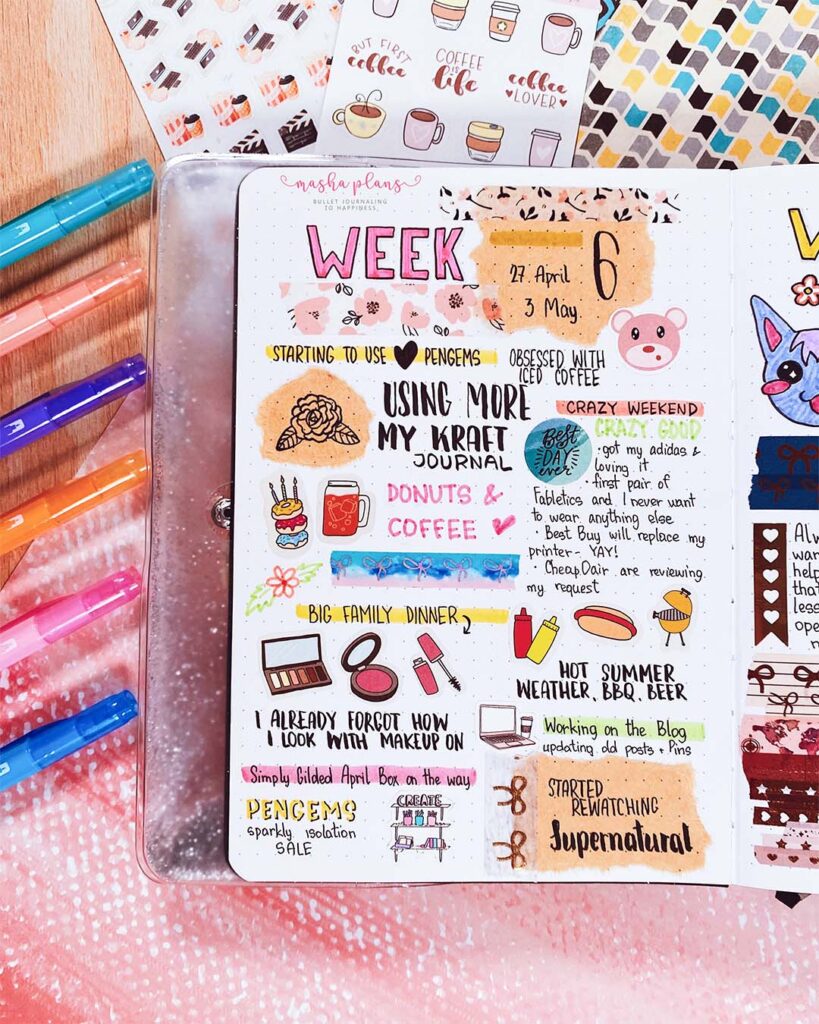 BUT FIRST
coffee
COFFEE
is
life
coffee
LOVER
masha plans
BULLET JOURNALING
TO HAPPINESS
WEEK
27. April
3 May
6
STARTING TO USE PENGEMS
OBSESSED WITH
ICED COFFEE
USING MORE
MY KRAFT
JOURNAL
CRAZY WEEKEND
CRAZY GOOD
Best
DAY
ever
· got my adidas &
loving it
· first pair of
Fabletics and I never want
to wear anything else
· Best Buy will replace my
printer - YAY!
· CheapOair are reviewing
my request
DONUTS &
COFFEE
BIG FAMILY DINNER
HOT SUMMER
WEATHER, BBQ, BEER
I ALREADY FORGOT HOW
I LOOK WITH MAKEUP ON
Working on the Blog
updating old posts + Pins
Simply Gilded April Box on the way
PENGEMS
sparkly isolation
SALE
CREATE
STARTED
REWATCHING
Supernatural